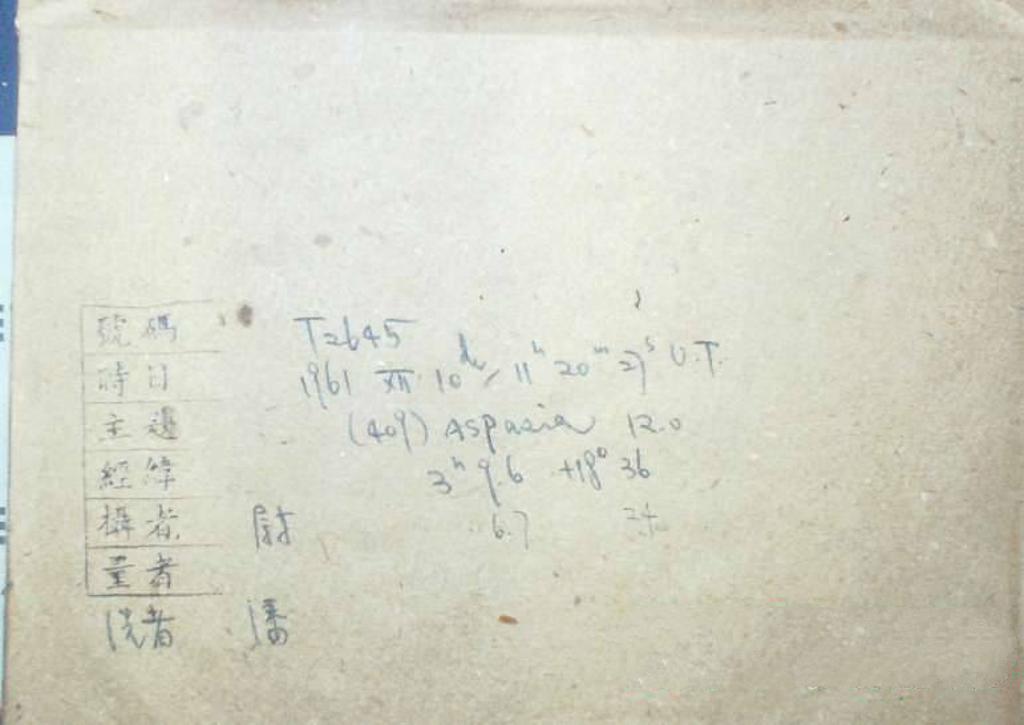 號碼 T2645
時日 1961 XII 10 11ʰ 20ᵐ 27ˢ U.T.
主邊 (409) Aspasia 12.0
經緯 3ʰ 9.6 +18° 36
攝者 尉 6.7 24
量者
洗者 潘